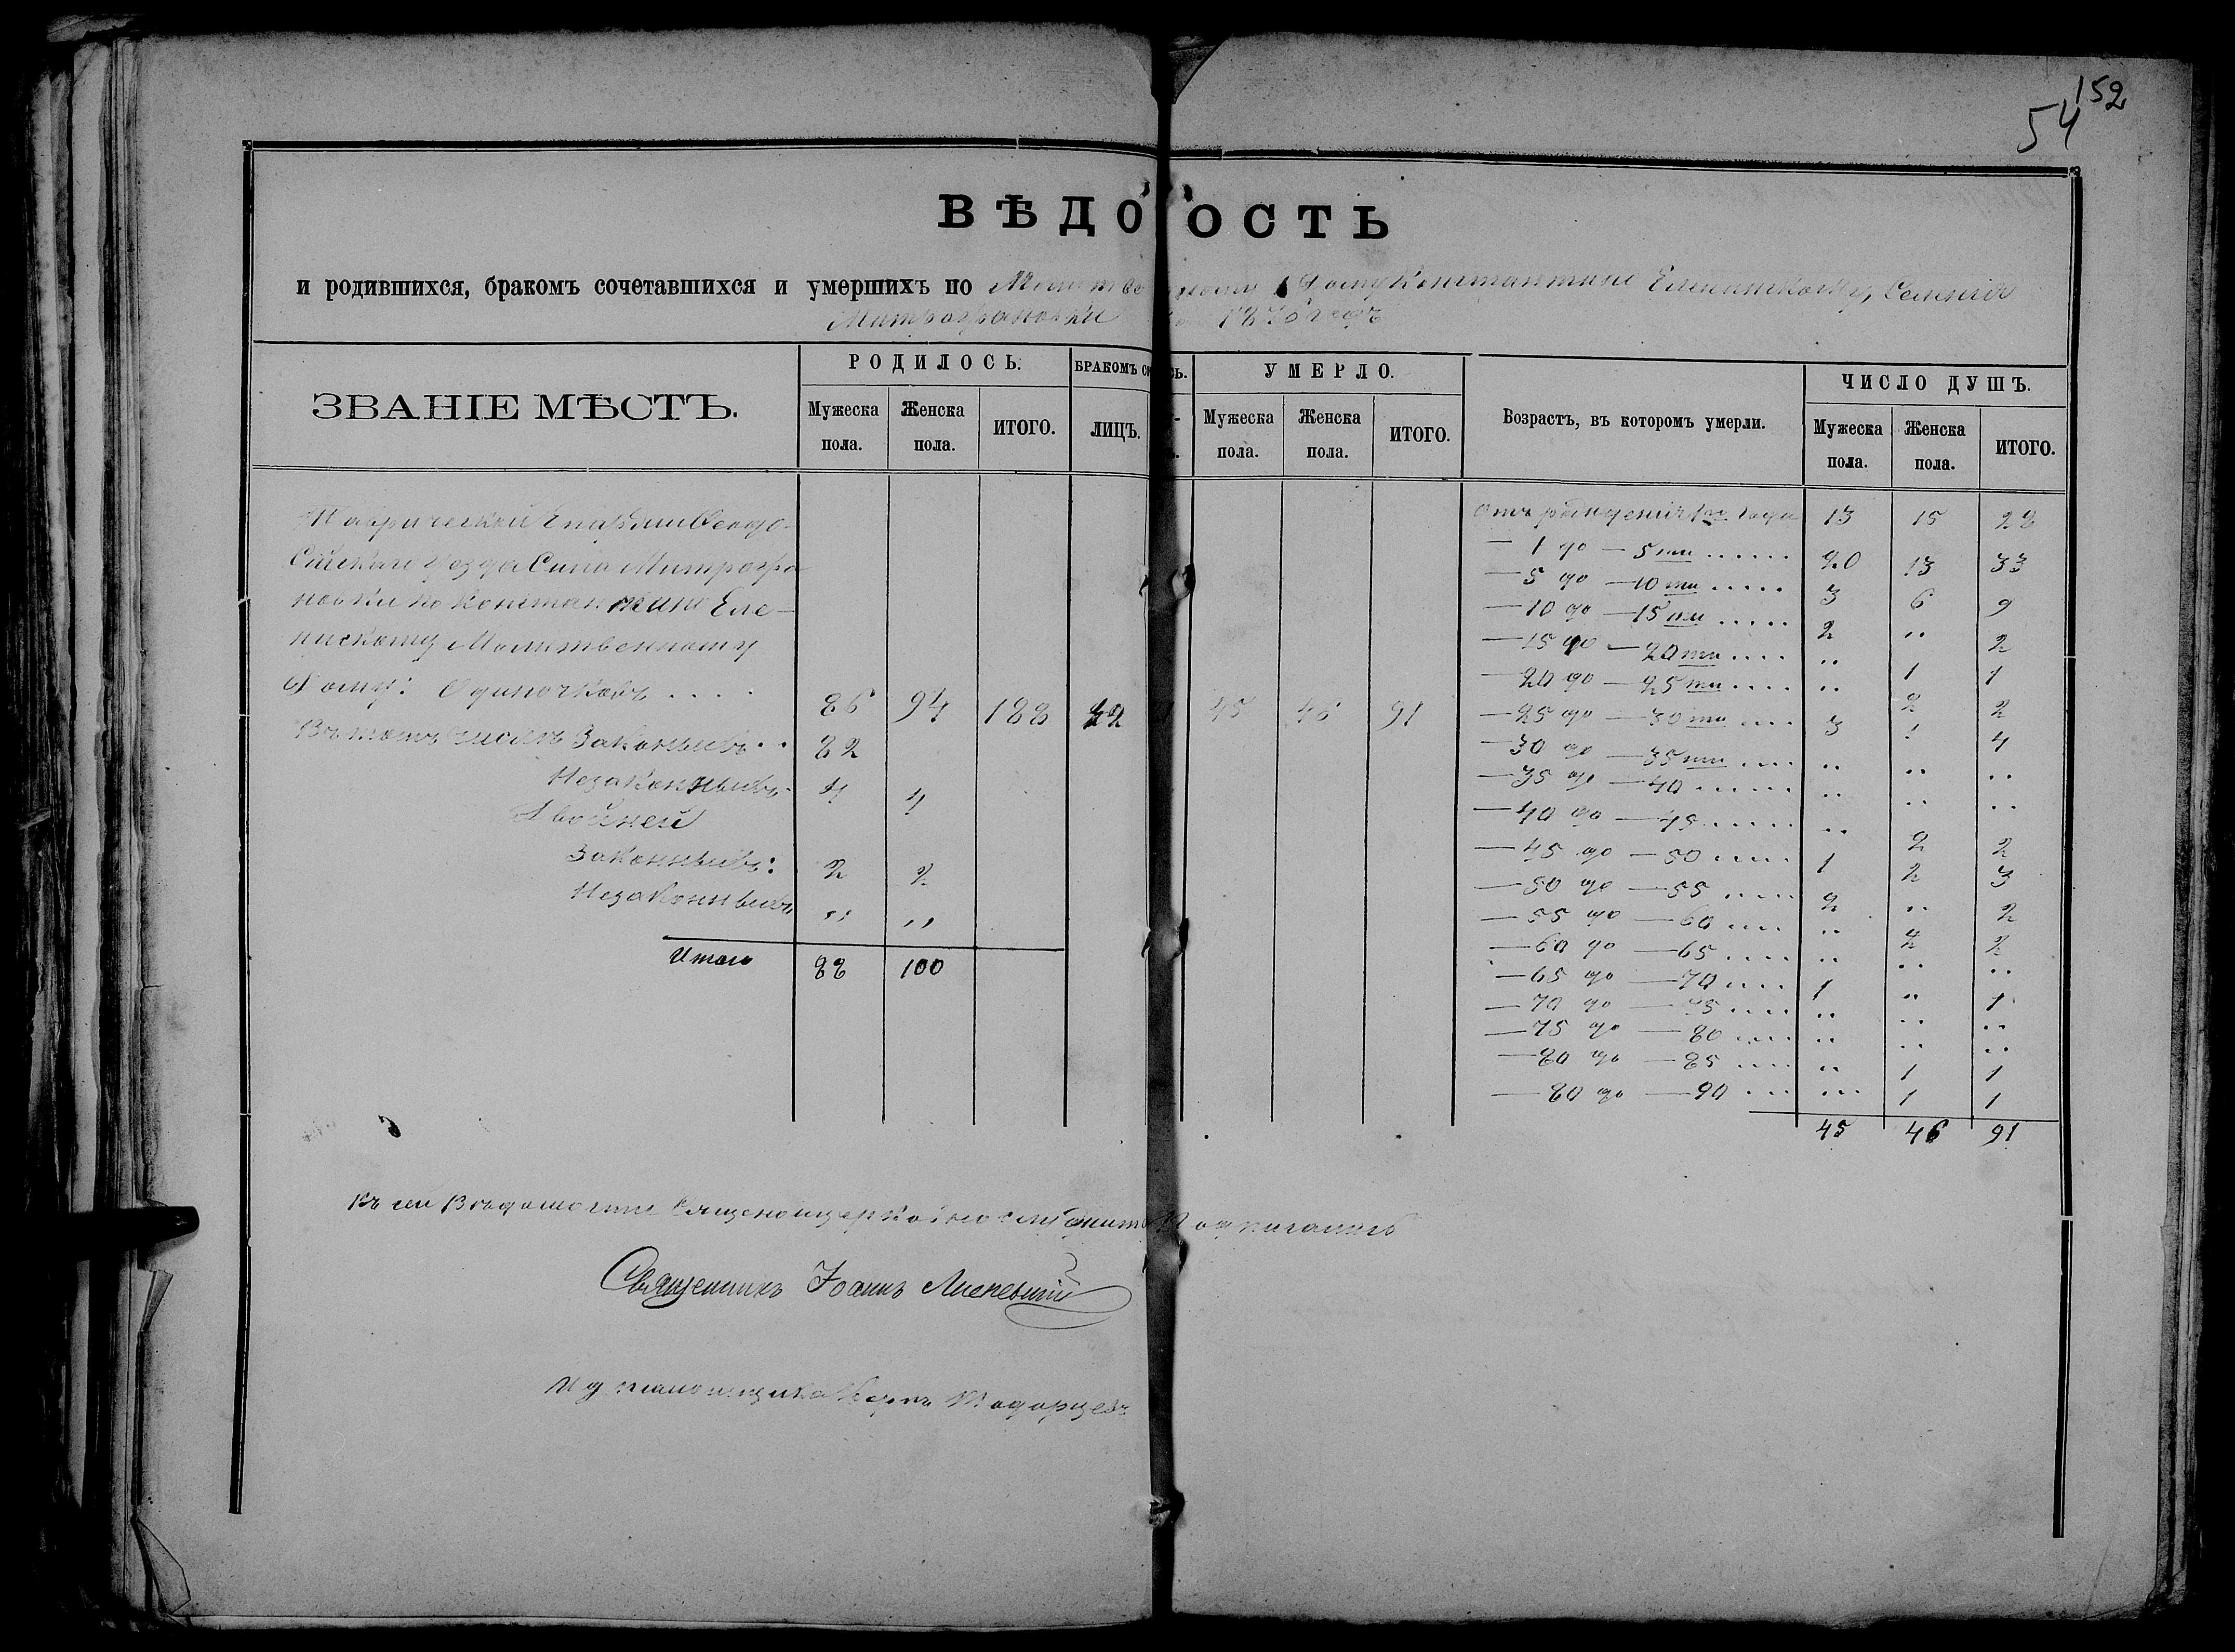 152
54
ВѢДО ОСТЬ
и родившихся, бракомъ сочетавшихся и умершихъ по Дому Константино Еленинскому, Селенія
Митрофановки 1876 годъ
ЗВАНІЕ МѢСТЪ.
РОДИЛОСЬ.
Мужеска пола.
Женска пола.
ИТОГО.
БРАКОМЪ СО СЬ.
ЛИЦЪ.
УМЕРЛО.
Мужеска пола.
Женска пола.
ИТОГО.
Возрастъ, въ которомъ умерли.
ЧИСЛО ДУШЪ.
Мужеска пола.
Женска пола.
ИТОГО.
Таврической Епархіи Ѳеодо-
сійскаго уезда Сила Митрофа
новки по Константино Еле-
нискому Молитвенному
Дому: Одиночковъ . . . . 86 94 188 42 45 46 91
Въ томъ числѣ Законныхъ . . 82
Незаконныхъ 4 4
Двойней
Законныхъ: 2 2
Незаконныхъ " "
Итого 88 100
Отъ рожденія 1го года 13 15 28
— 1 до — 5ти ...... 20 13 33
— 5 до — 10ти ..... 3 6 9
— 10 до — 15ти ..... 2 " 2
— 15 до — 20ти .... " 1 1
— 20 до — 25ти .... " 2 2
— 25 до — 30ти .... 3 1 4
— 30 до — 35ти .... " " "
— 35 до — 40 ...... " " "
— 40 до — 45 ..... " 2 2
— 45 до — 50 ..... 1 2 3
— 50 до — 55 ..... 2 " 2
— 55 до — 60 .... " 2 2
— 60 до — 65 ..... " " "
— 65 до — 70 .... 1 " 1
— 70 до — 75 .... " " "
— 75 до — 80 .... " " "
— 80 до — 85 .... " 1 1
— 80 до — 90 ... " 1 1
45 46 91
Къ сей Вѣдомости
Священникъ Іоаннъ
И д псаломщика